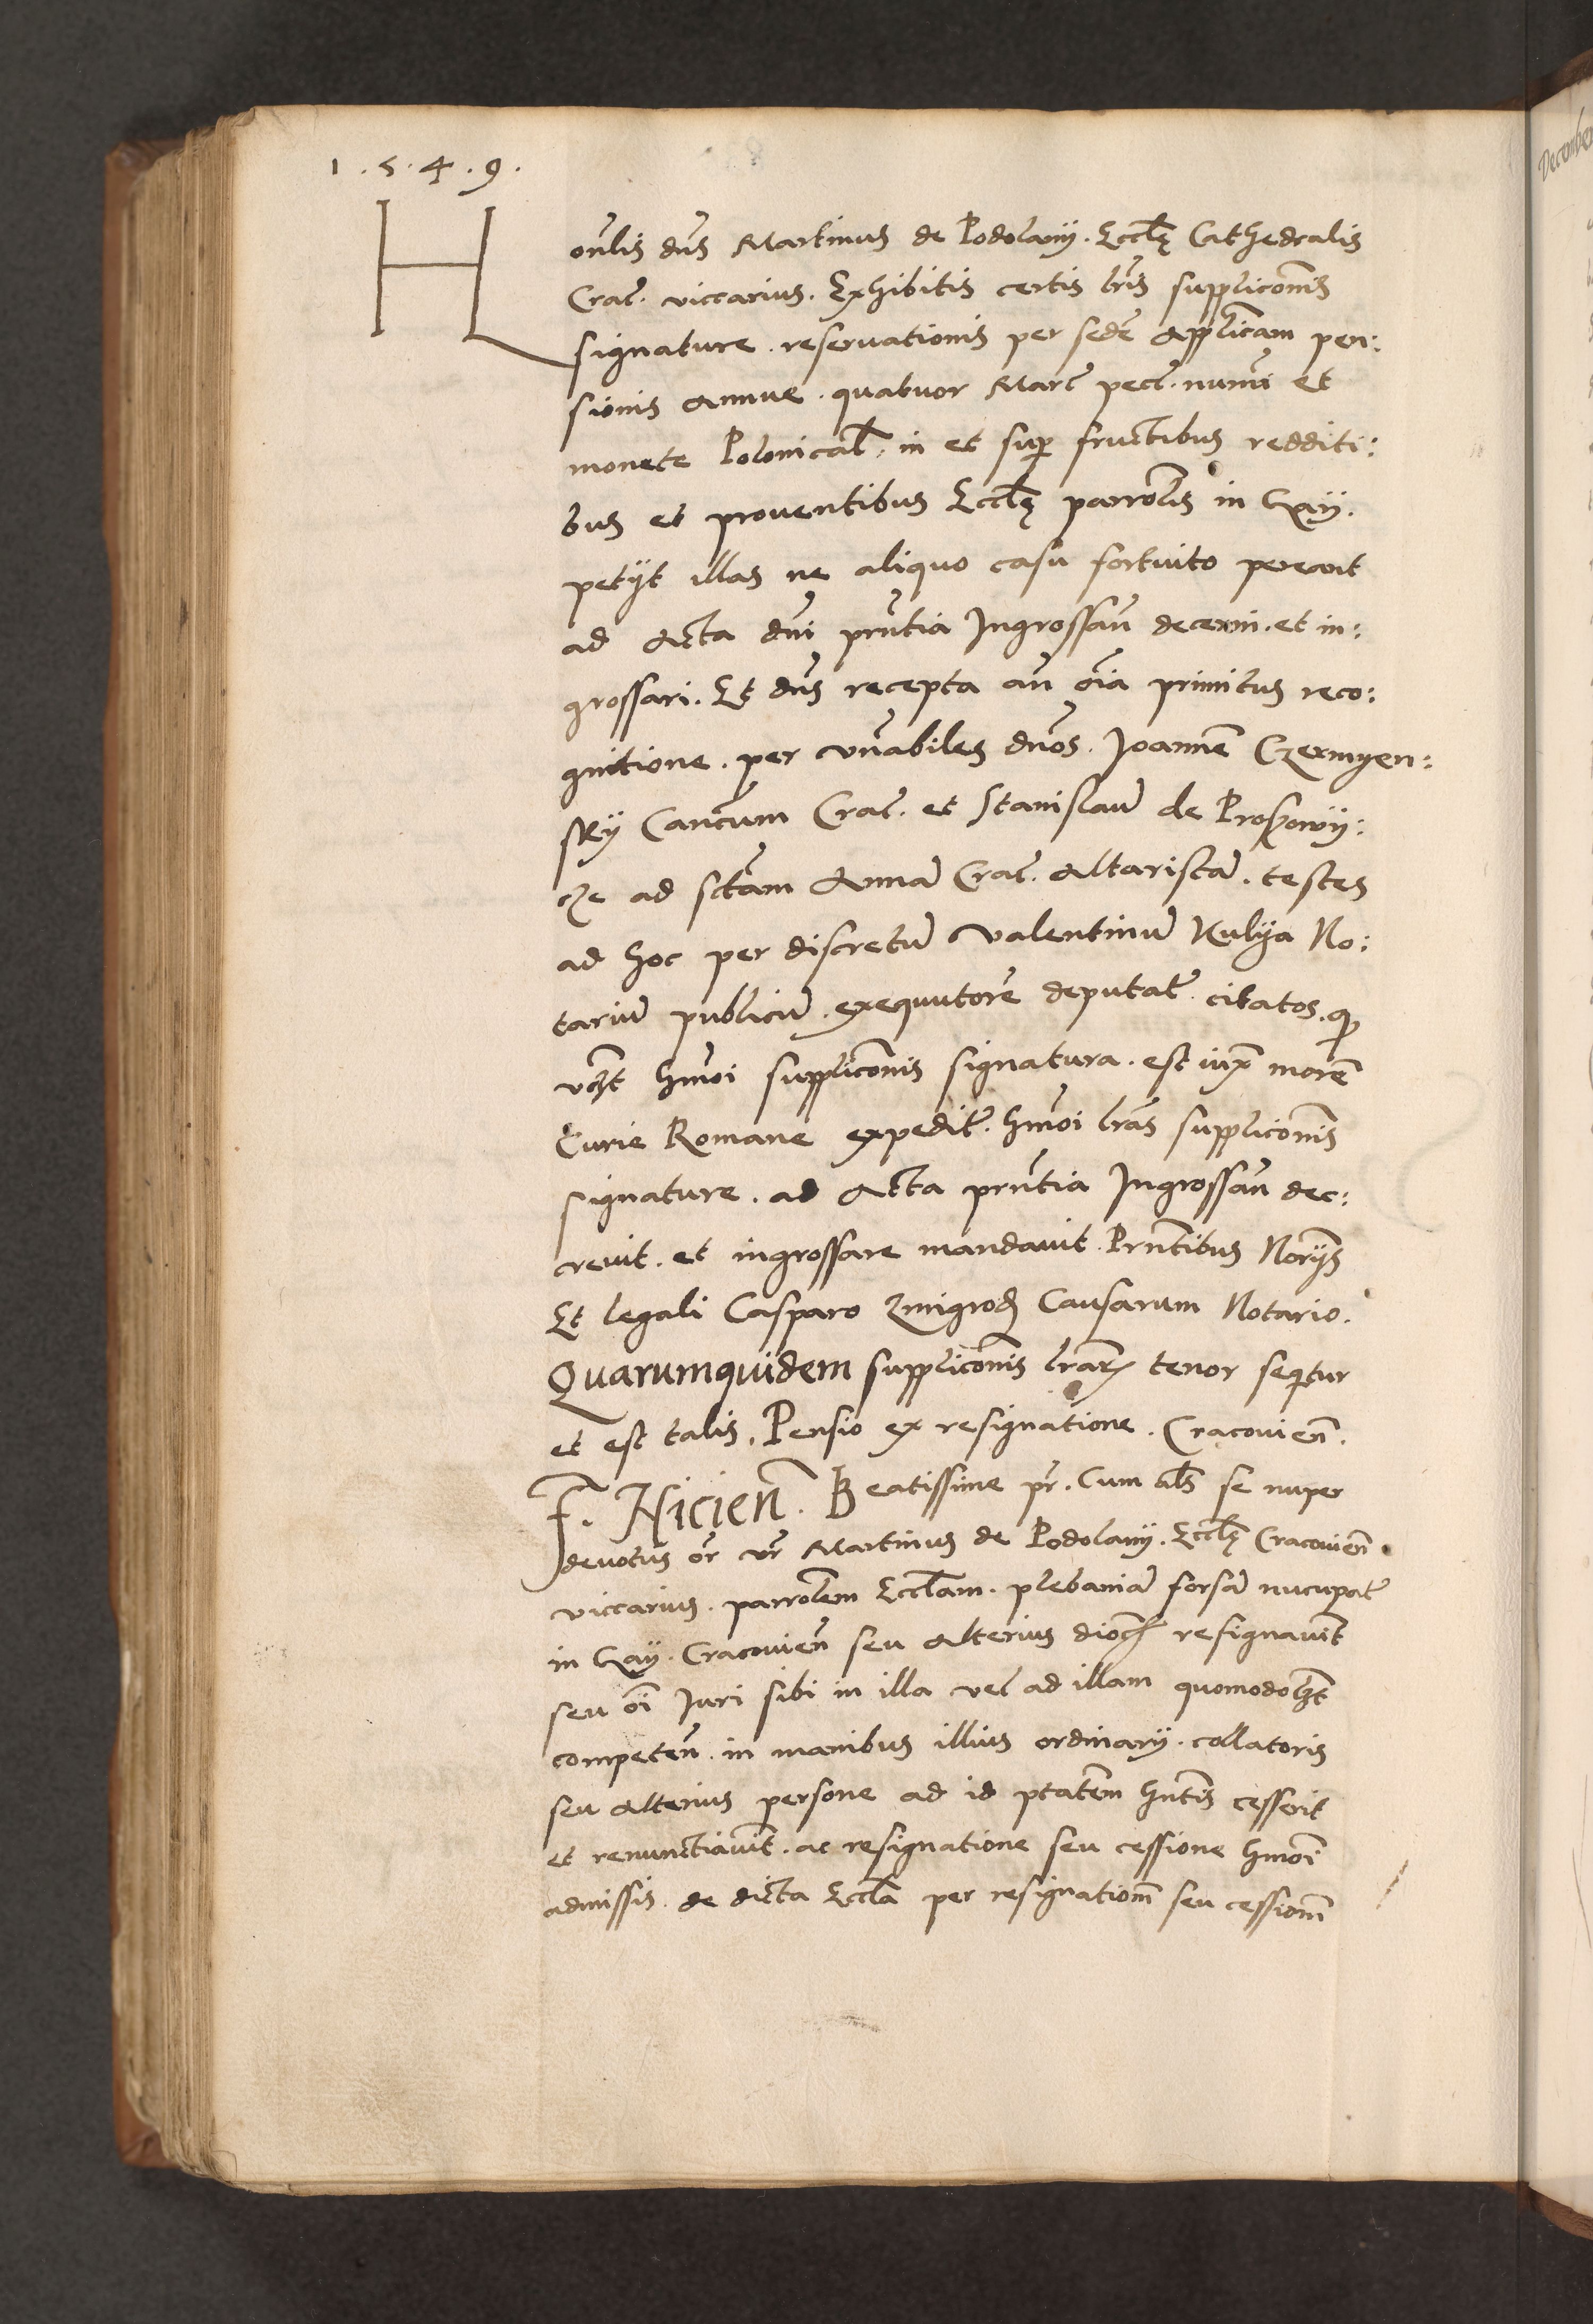 1.5.4.9.
Honlis dns Martinus de Podolany. Eccle Cathedralis
Crac. viccarius. Exhibitis certis lris suppliconis
signature. reservationis per sede Applicam pen:
sionis Annue. quatuor Marc pecc. numi et
monete Polonical, in et sup fructibus redditi:
bus et proventibus Eccle parrolis in Gay.
petyt illas ne aliquo casu fortuito pereant
ad Acta dni prntia Ingrossan decerni. et in:
grossari. Et dns recepta an oia primitus reco:
gnitione. per vnabiles dnos. Joannem Czermyen:
sky Cancum Crac. et Stanislau de Proschowy:
cze ad sctam Anna Crac. Altarista. testes
ad hoc per discretu Valentinu Kulya No:
tariu publicu. exequutore deputat. citatos. q
vt hmoi suppliconis signatura. est iux more
Curie Romane expedit. hmoi lras suppliconis
signature. ad Acta prntia Ingrossan dec:
revit. et ingrossare mandavit. Prntibus Norys
Et legali Casparo Zmigrod Causarum Notario.
Quarumquidem suppliconis lrar tenor seqtur
et est talis. Pensio ex resignatione. Cracovien.
F. Nicien. Beatissime pr. Cum als se nuper
devotus or vr Martinus de Podolany. Eccle Cracovien
viccarius. parrolem Ecclam. plebania forsa nucupat
in Gay. Cracovien seu Alterius dioc resignavit
seu oi Juri sibi in illa vel ad illam quomodolzt
competen. in manibus illius ordinary. collatoris
seu alterius persone ad id ptatem hntis cesserit
et renunctiavit. ac resignatione seu cessione hmoi
admissis. de dicta Eccla per resignationem seu cessionem
December